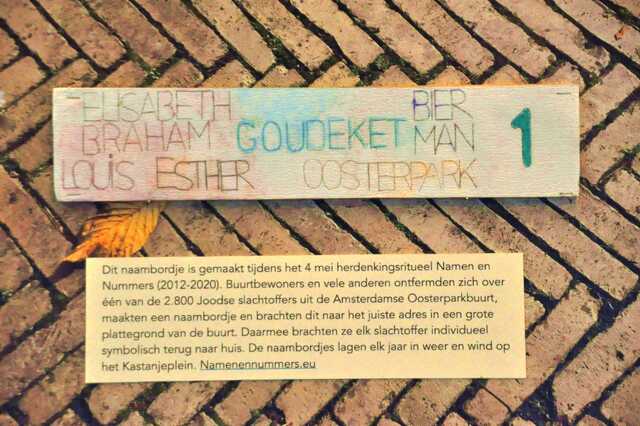 ELISABETH BIER
BRAHAM GOUDEKET MAN 1
LOUIS ESTHER OOSTERPARK
Dit naambordje is gemaakt tijdens het 4 mei herdenkingsritueel Namen en
Nummers (2012-2020). Buurtbewoners en vele anderen ontfermden zich over
één van de 2.800 Joodse slachtoffers uit de Amsterdamse Oosterparkbuurt,
maakten een naambordje en brachten dit naar het juiste adres in een grote
plattegrond van de buurt. Daarmee brachten ze elk slachtoffer individueel
symbolisch terug naar huis. De naambordjes lagen elk jaar in weer en wind op
het Kastanjeplein. Namenennummers.eu